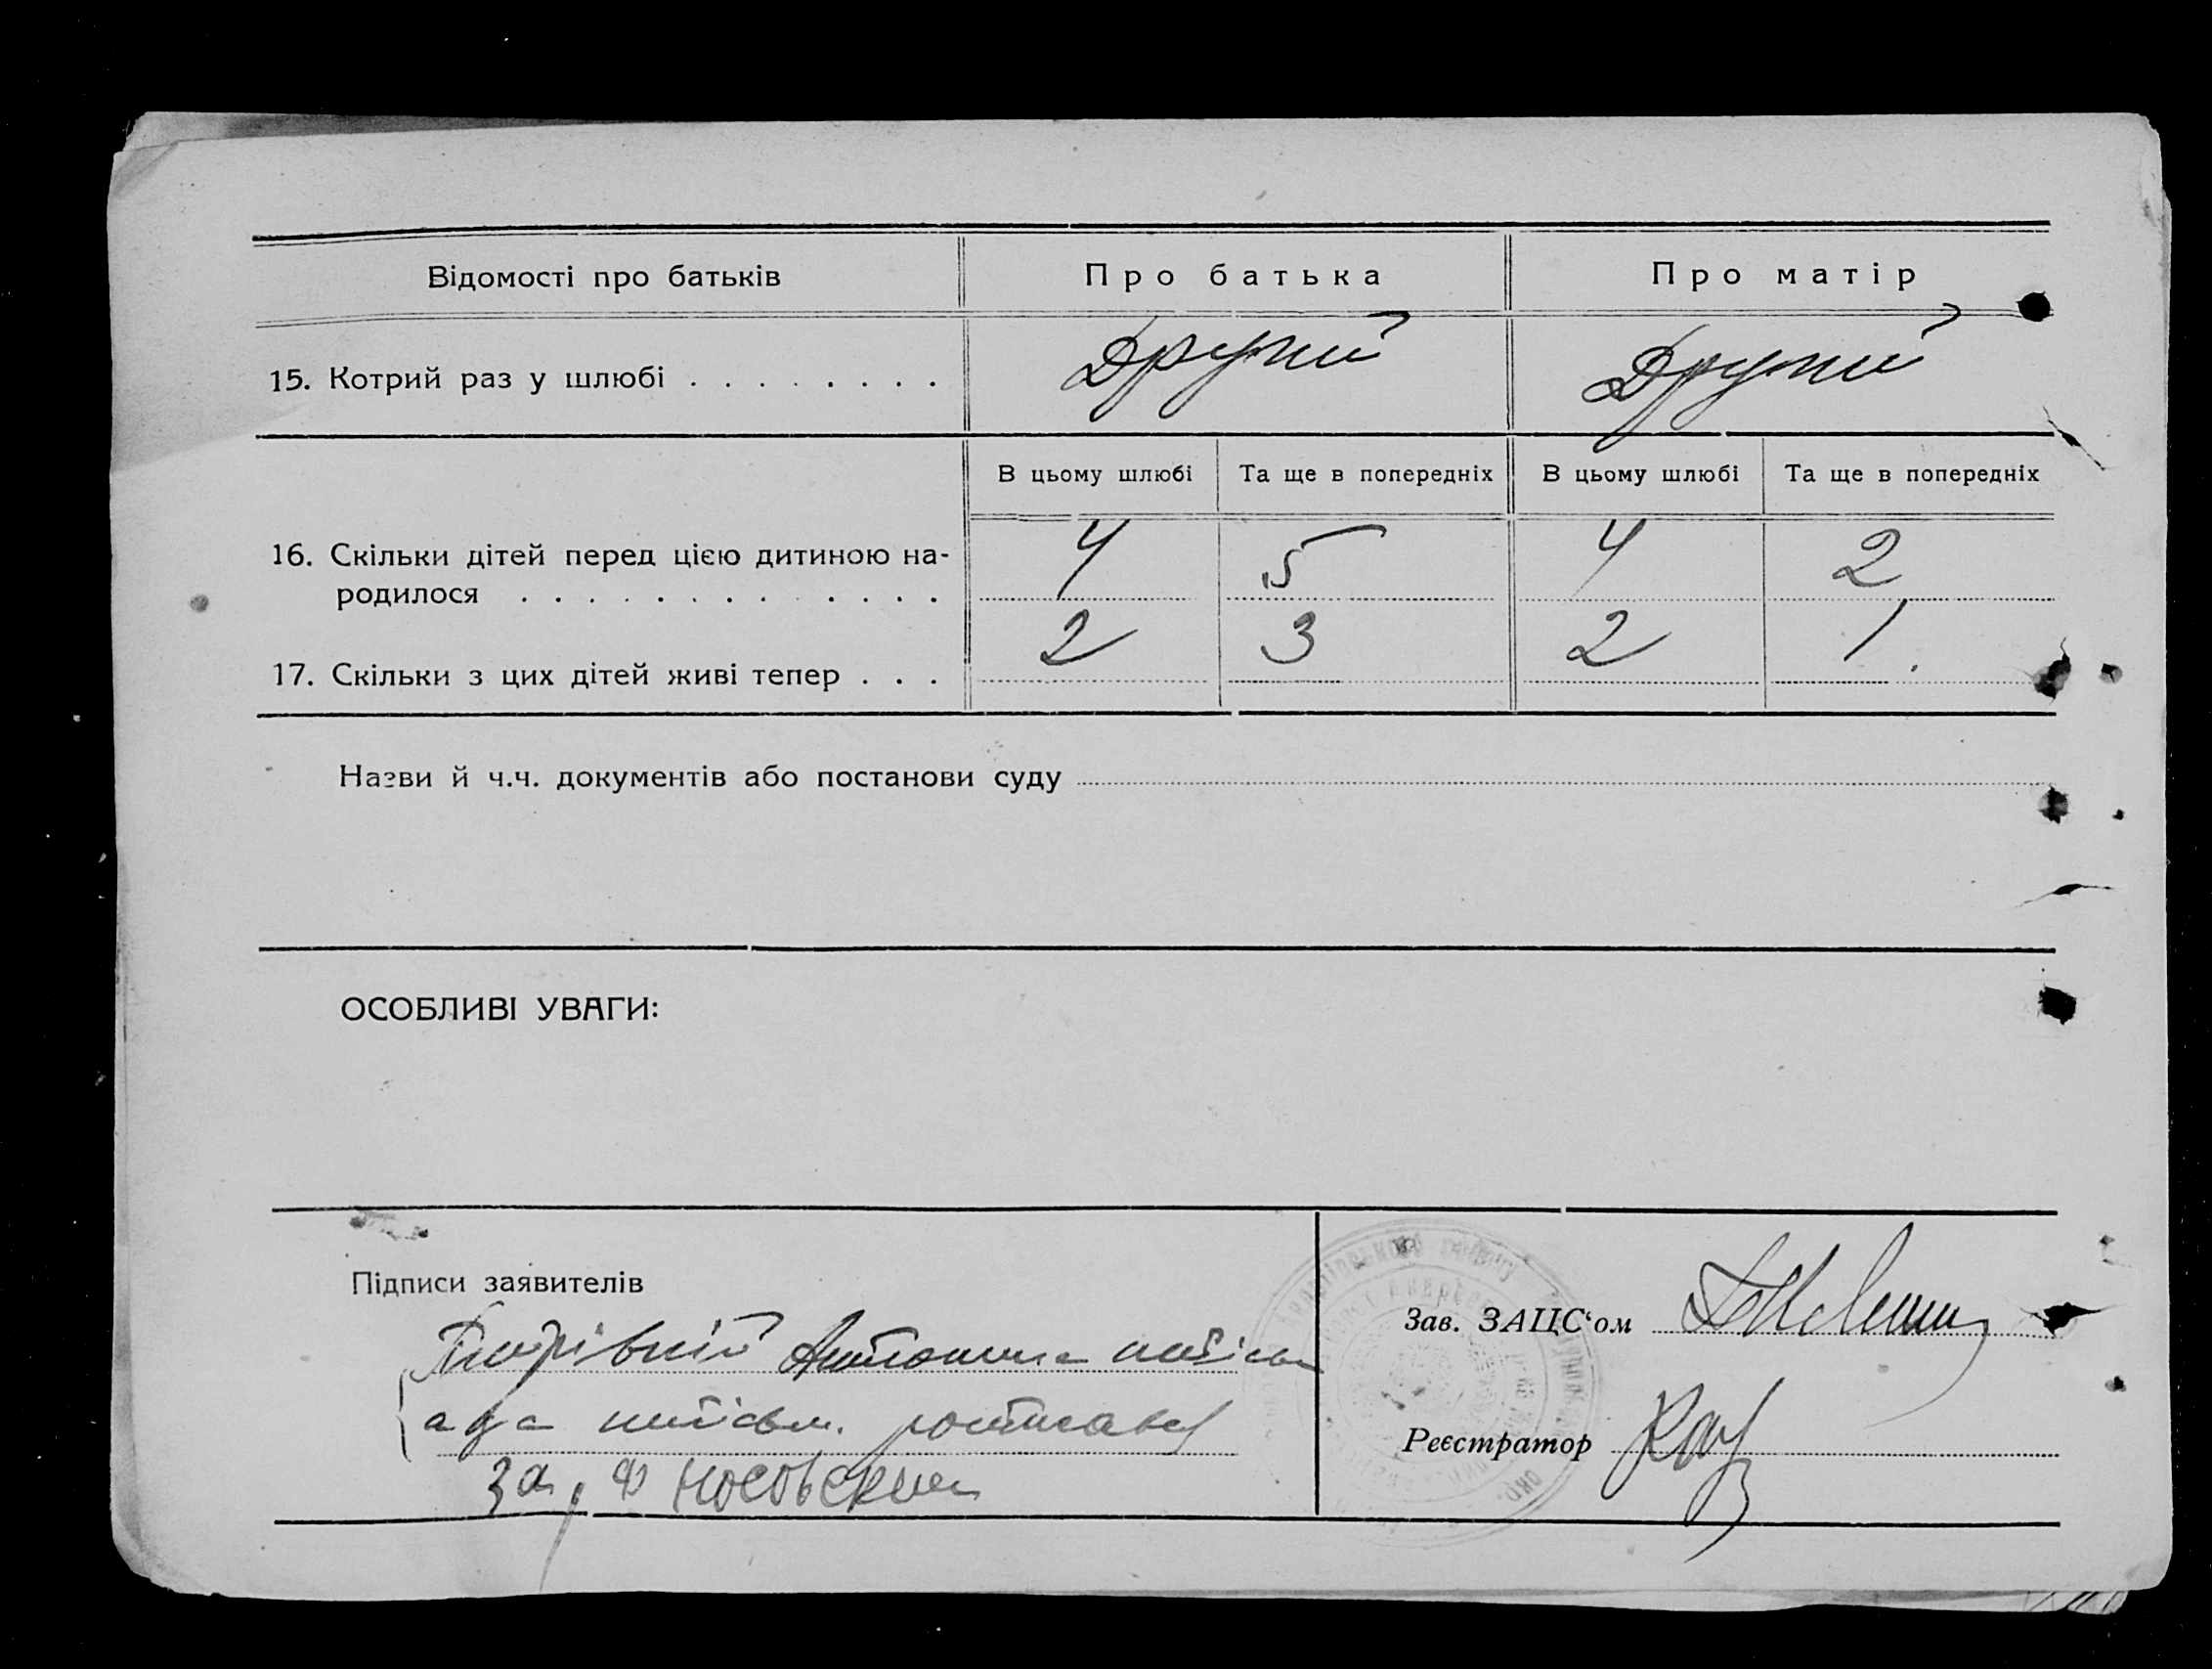 Відомості про батьків
Про батька
Про матір
15. Котрий раз у шлюбі . . . . . . . .
Другий
Другий
В цьому шлюбі
Та ще в попередніх
В цьому шлюбі
Та ще в попередніх
16. Скільки дітей перед цією дитиною на-
родилося . . . . . . . . . . . . .
4
5
4
2
17. Скільки з цих дітей живі тепер . . .
2
3
2
1.
Назви й ч.ч. документів або постанови суду
ОСОБЛИВІ УВАГИ:
Підписи заявителів
Антонина
а за
за
Зав. ЗАЦС‘ом
Реєстратор